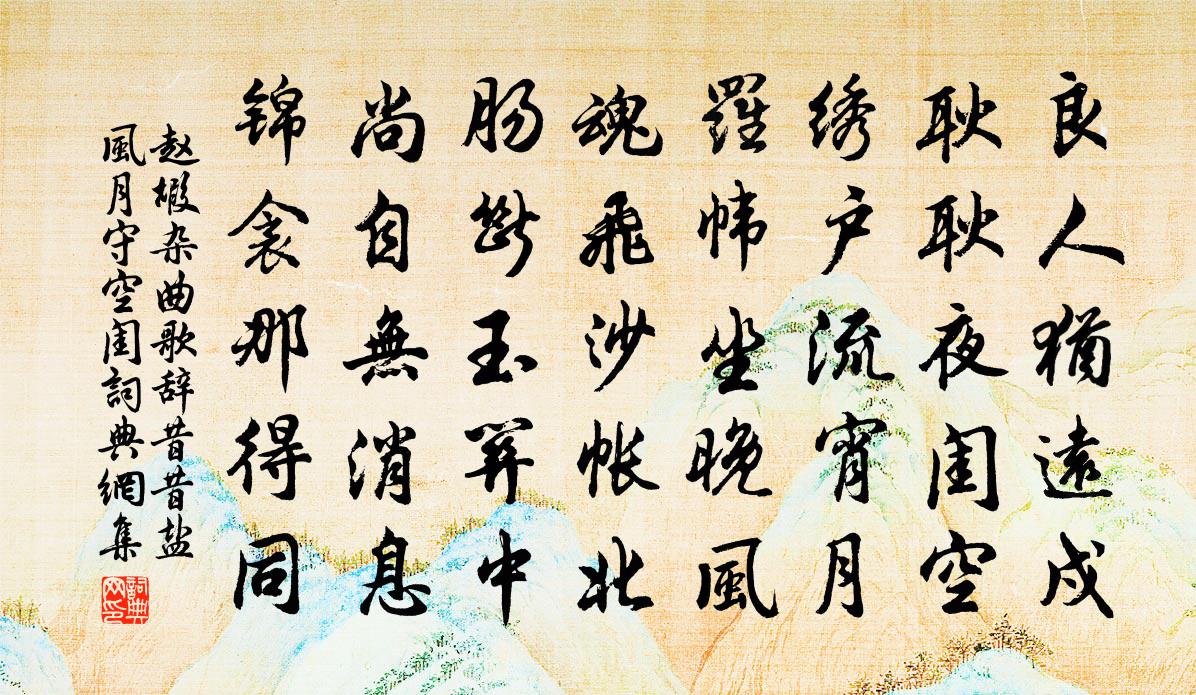 良人猶遠戍
耿耿夜闺空
绣户流宵月
羅帏坐晚風
魂飛沙帐北
肠斷玉關中
尚自無消息
锦衾那得同
赵嘏杂曲歌辞昔昔盐
風月守空闺詞典網集
詞典网印